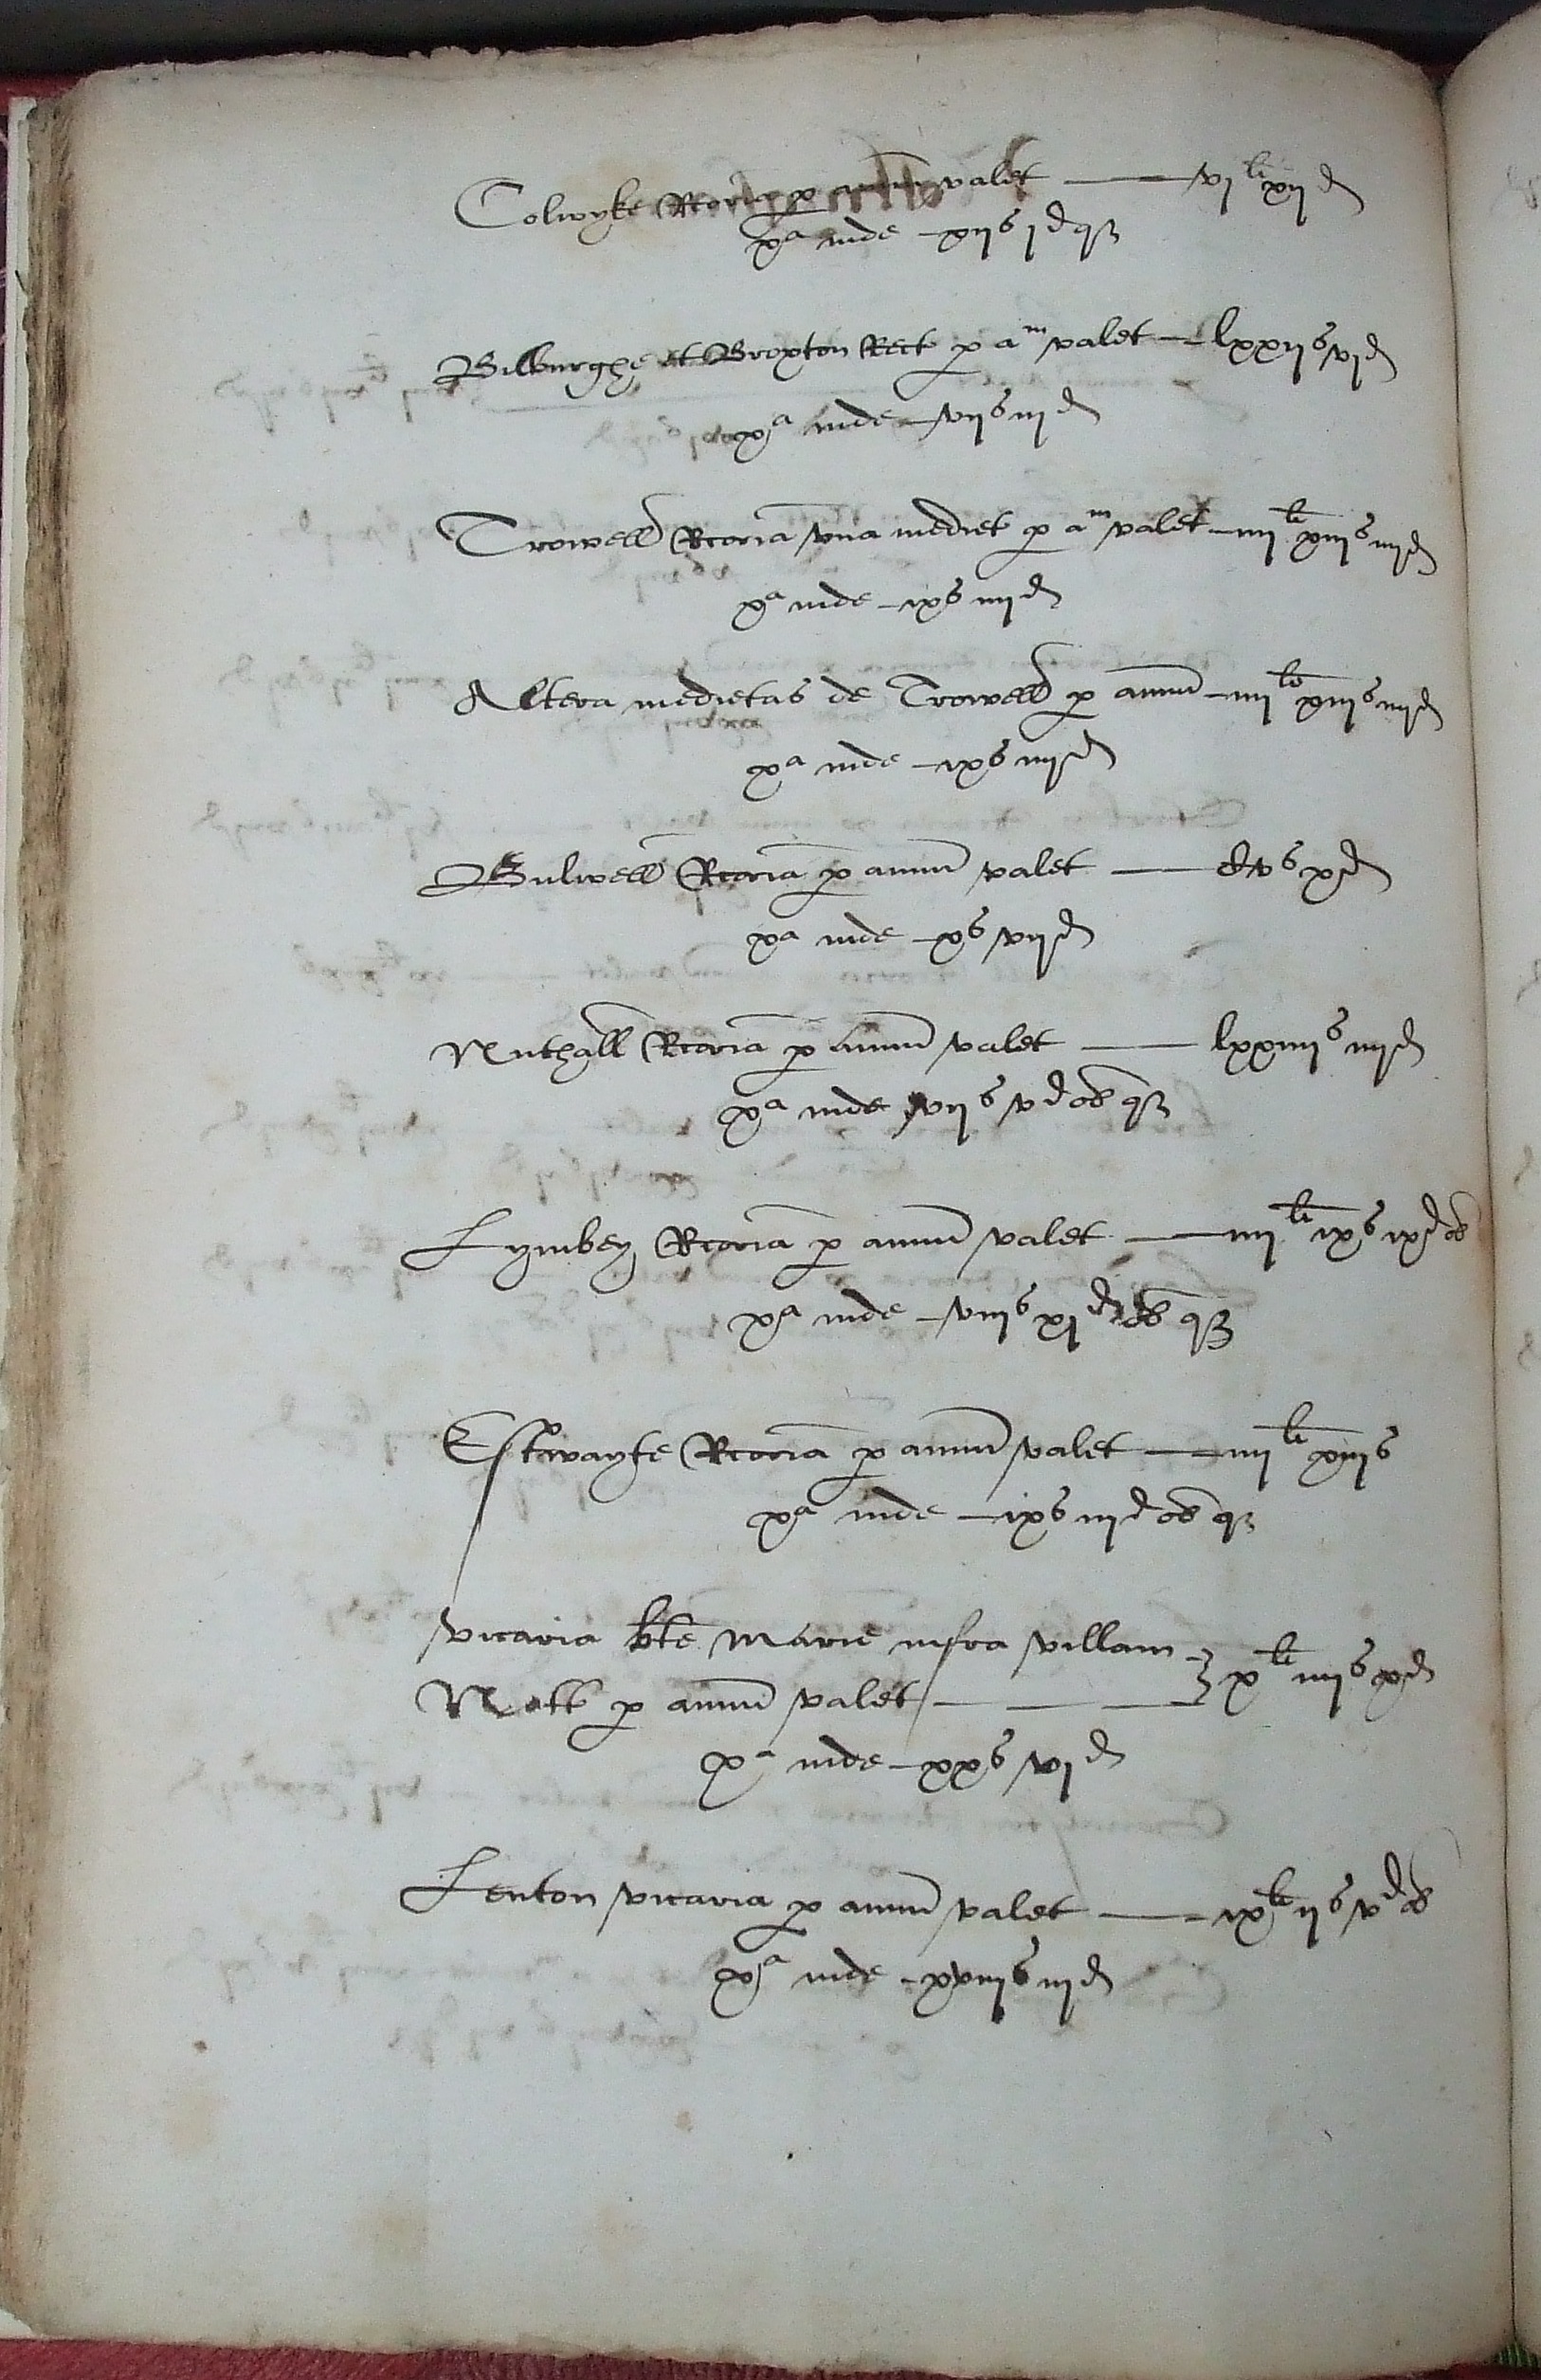 Colwyke Rcoria p annu valet — vj li xij d
xa inde — xijs j d q3
Bilburghe et Broxton Rect p am valet — lxxijs vj d
xa inde — vijs iij d
Trowell Rcoria vna mediet p am valet — iiij li xiijs iiij d
xa inde — ixs iiij d
Altera medietas de Trowell p annu — iiij li xiijs iiij d
xa inde — ixs iiij d
Bulwell Rcoria p annu valet — Cvs x d
xa inde — xs vij d
Nuthall Rcoria p annu valet — lxxiiijs iiij d
xa inde vijs v d ob q3
Lymbey Rcoria p annu valet — iiij li ixs ix d ob
xa inde — viijs xj d ob q3
Estwayte Rcoria p annu valet — iiij li xiijs
xa inde — ixs iij d ob q3
vicaria bte Marie infra villam
Nott p annu valet — x li iiijs x d
xa inde — xxs vj d
Lenton vicaria p annu valet — ix li ijs v d ob
xa inde — xviijs iij d